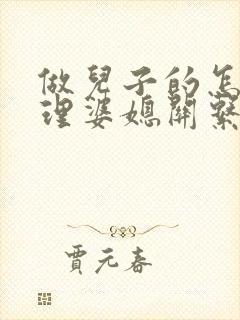 做兒子的怎
理婆媳關繫
賈元春